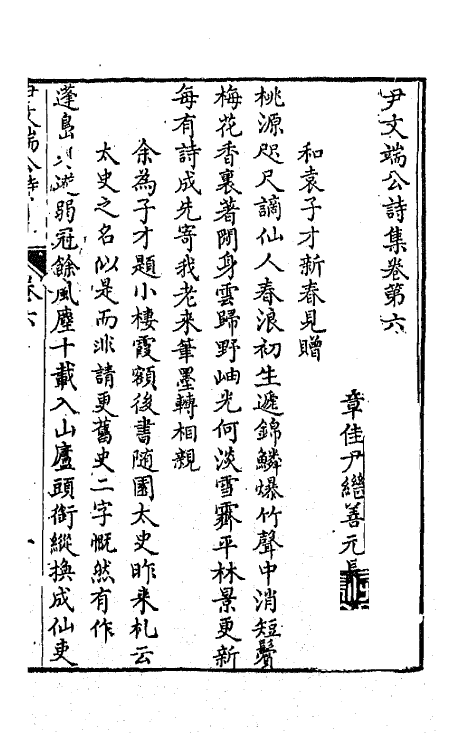 尹文端公詩集卷第六
章佳尹繼善元長
和袁子才新春見贈
桃源咫尺謫仙人春浪初生遞錦鱗爆竹聲中消短鬢
梅花香裏著閒身雲歸野岫光何淡雪霽平林景更新
每有詩成先寄我老來筆墨轉相親
余為子才題小棲霞額後書隨園太史昨来札云
太史之名似是而非請更舊史二字慨然有作
蓬島 遊弱冠餘風塵十載入山廬頭銜縱換成仙吏
尹文端公詩 卷六